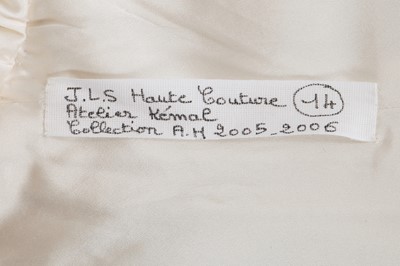 J.L.S Haute Couture 14
Atelier Kémal
Collection A.H 2005_2006